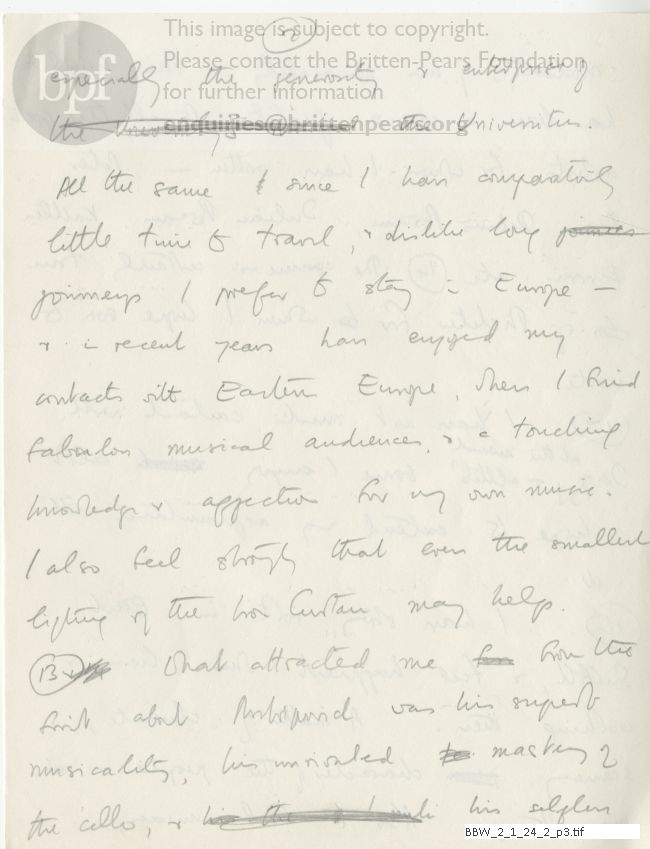 This image is subject to copyright.
bpf
Please contact the Britten-Pears Foundation
for further information
enquiries@brittenpears.org
2
especially the generosity & enterprise of
the Universities.
All the same & since I have comparatively
little time to travel, & dislike long
journeys I prefer to stay in Europe —
& in recent years have enjoyed my
contacts with Eastern Europe, where I find
fabulous musical audiences, & a touching
knowledge & affection for my own music.
I also feel strongly that even the smallest
lifting of the Iron Curtain may help.
13 What attracted me from the
first about Rostropovich was his superb
musicality, his unrivalled mastery of
the cello, & his selfless
BBW_2_1_24_2_p3.tif